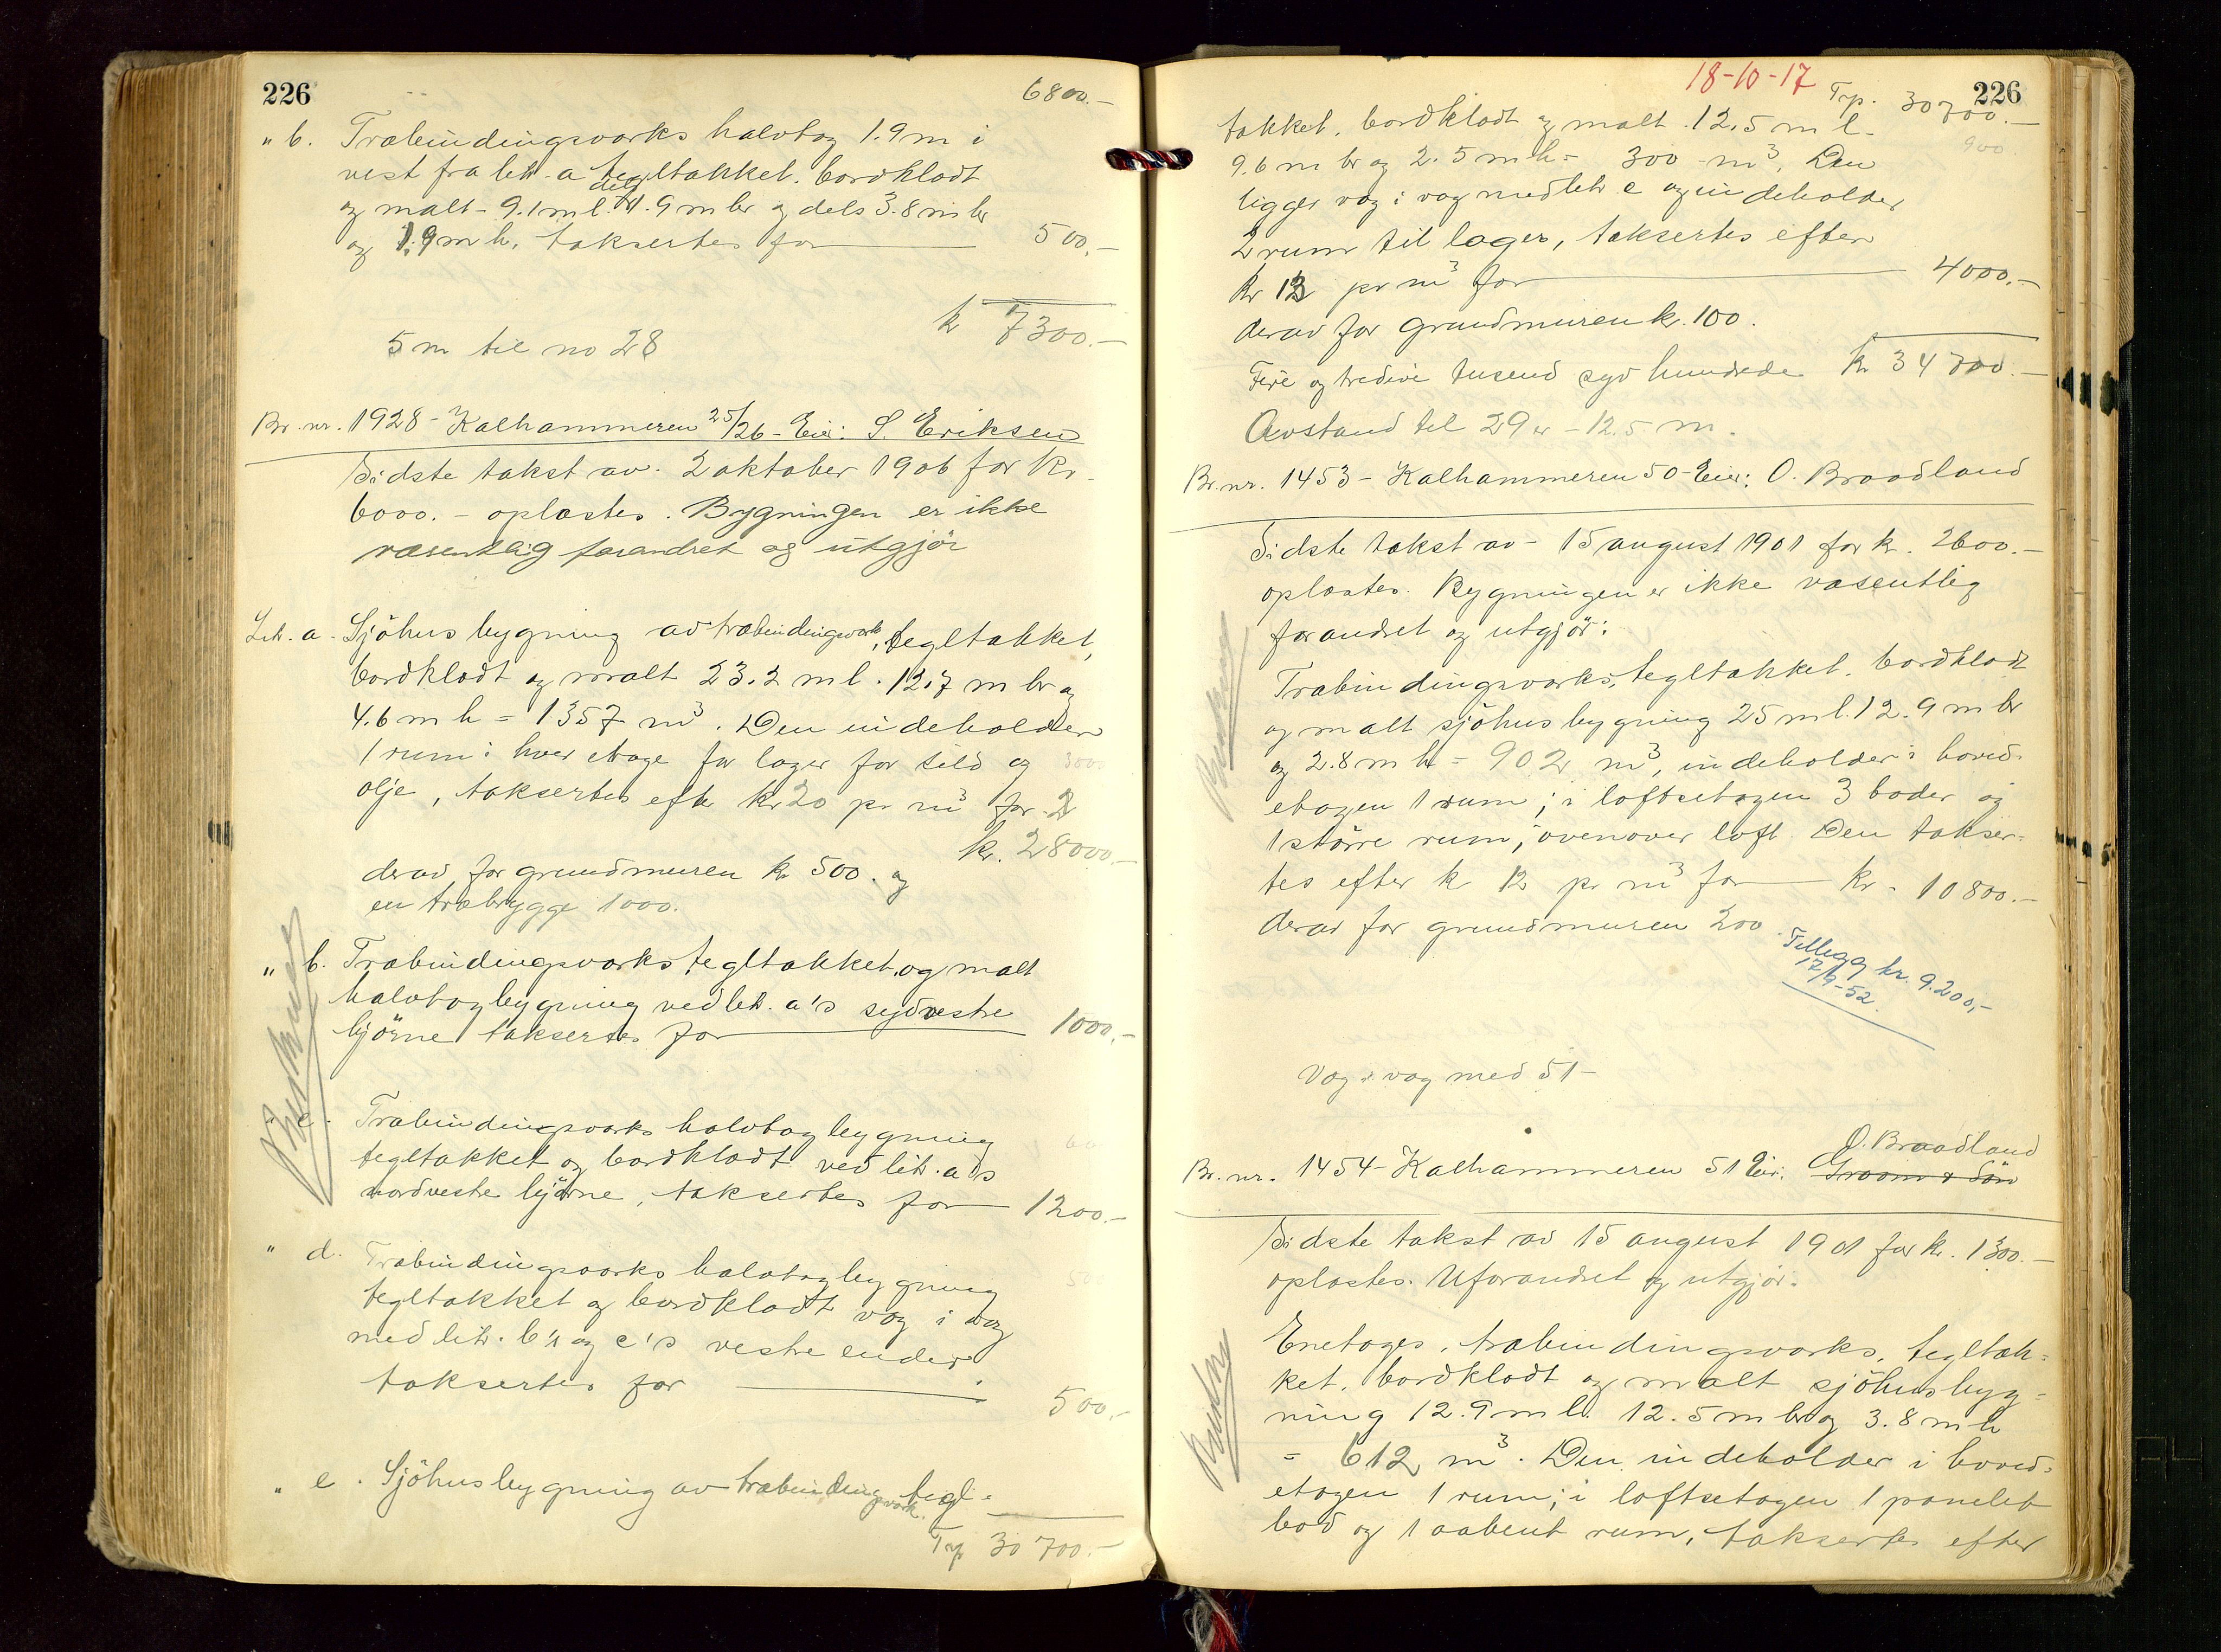 226
6800.-
" b. Træbindingsverks halvtag 1.9 m i
vest fra lit. a tegltækket. bordklædt
og malt - 9.1 m l. dels 1.9 m br og dels 3.8 m br
og 1.9 m h. taksertes for 500.-
k 7300.-
5 m til no 28
Br. nr. 1928 - Kalhammeren 25/26 - Eier: S. Eriksen
Sidste takst av 2 oktober 1906 for kr.
6000.- oplæstes. Bygningen er ikke
væsentlig forandret og utgjör
Lit. a. Sjöhusbygning av træbindingsverk, tegltækket,
bordklædt og malt 23.2 m l. 12.7 m br og
4.6 m h = 1357 m³. Den indeholder
1 rum i hver etage for lager for sild og
olje, taksertes efter kr 20 pr m³ for
kr. 28000.-
derav for grundmuren kr 500. og
en træbrygge 1000.
" b. Træbindingsverks tegltækket og malt
halvtagbygning ved lit. a's sydvestre
hjörne taksertes for 1000.-
" c. Træbindingsverks halvtagbygning
tegltækket og bordklædt ved lit. a's
nordvestre hjörne, taksertes for 1200.-
" d. Træbindingsverks halvtagbygning
tegltækket og bordklædt væg i væg
med lit. b's og c's vestre ender
taksertes for 500.-
" e. Sjöhusbygning av træbindingsverk. tegl-
Trp 30700.-
18-10-17
226
Trp. 30700.-
tækket. bordklædt og malt. 12.5 m l.
9.6 m br og 2.5 m h = 300 m³. Den
ligger væg i væg med lit c og indeholder
2 rum til lager, taksertes efter
kr 13 pr m³ for 4000.-
derav for grundmuren kr. 100.
Fire og tredive tusend syv hundrede kr 34700.-
Avstand til 29 er - 12.5 m.
Br. nr. 1453 - Kalhammeren 50 - Eier: O. Braadland
Sidste takst av - 15 august 1901 for kr. 2600.-
oplæstes. Bygningen er ikke væsentlig
forandret og utgjör:
Træbindingsverks, tegltækket. bordklædt
og malt sjöhusbygning 25 m l. 12.9 m br
og 2.8 m h = 902 m³, indeholder i hoved-
etagen 1 rum; i loftsetagen 3 boder og
1 större rum, ovenover loft. Den takser-
tes efter k 12 pr m³ for kr. 10800.-
derav for grundmuren 200.
Tillegg kr. 9.200,-
17/9-52.
Væg i væg med 51 -
O. Braadland
Br. nr. 1454 - Kalhammeren 51 Eier: Groom & Sön
Sidste takst av 15 august 1901 for kr. 1300.-
oplæstes. Uforandret og utgjör:
Enetages, træbindingsverks, tegltæk-
ket. bordklædt og malt sjöhusbyg-
ning 12.9 m l. 12.5 m br og 3.8 m h
= 612 m³. Den indeholder i hoved-
etagen 1 rum; i loftsetagen 1 panelet
bod og 1 aabent rum, taksertes efter